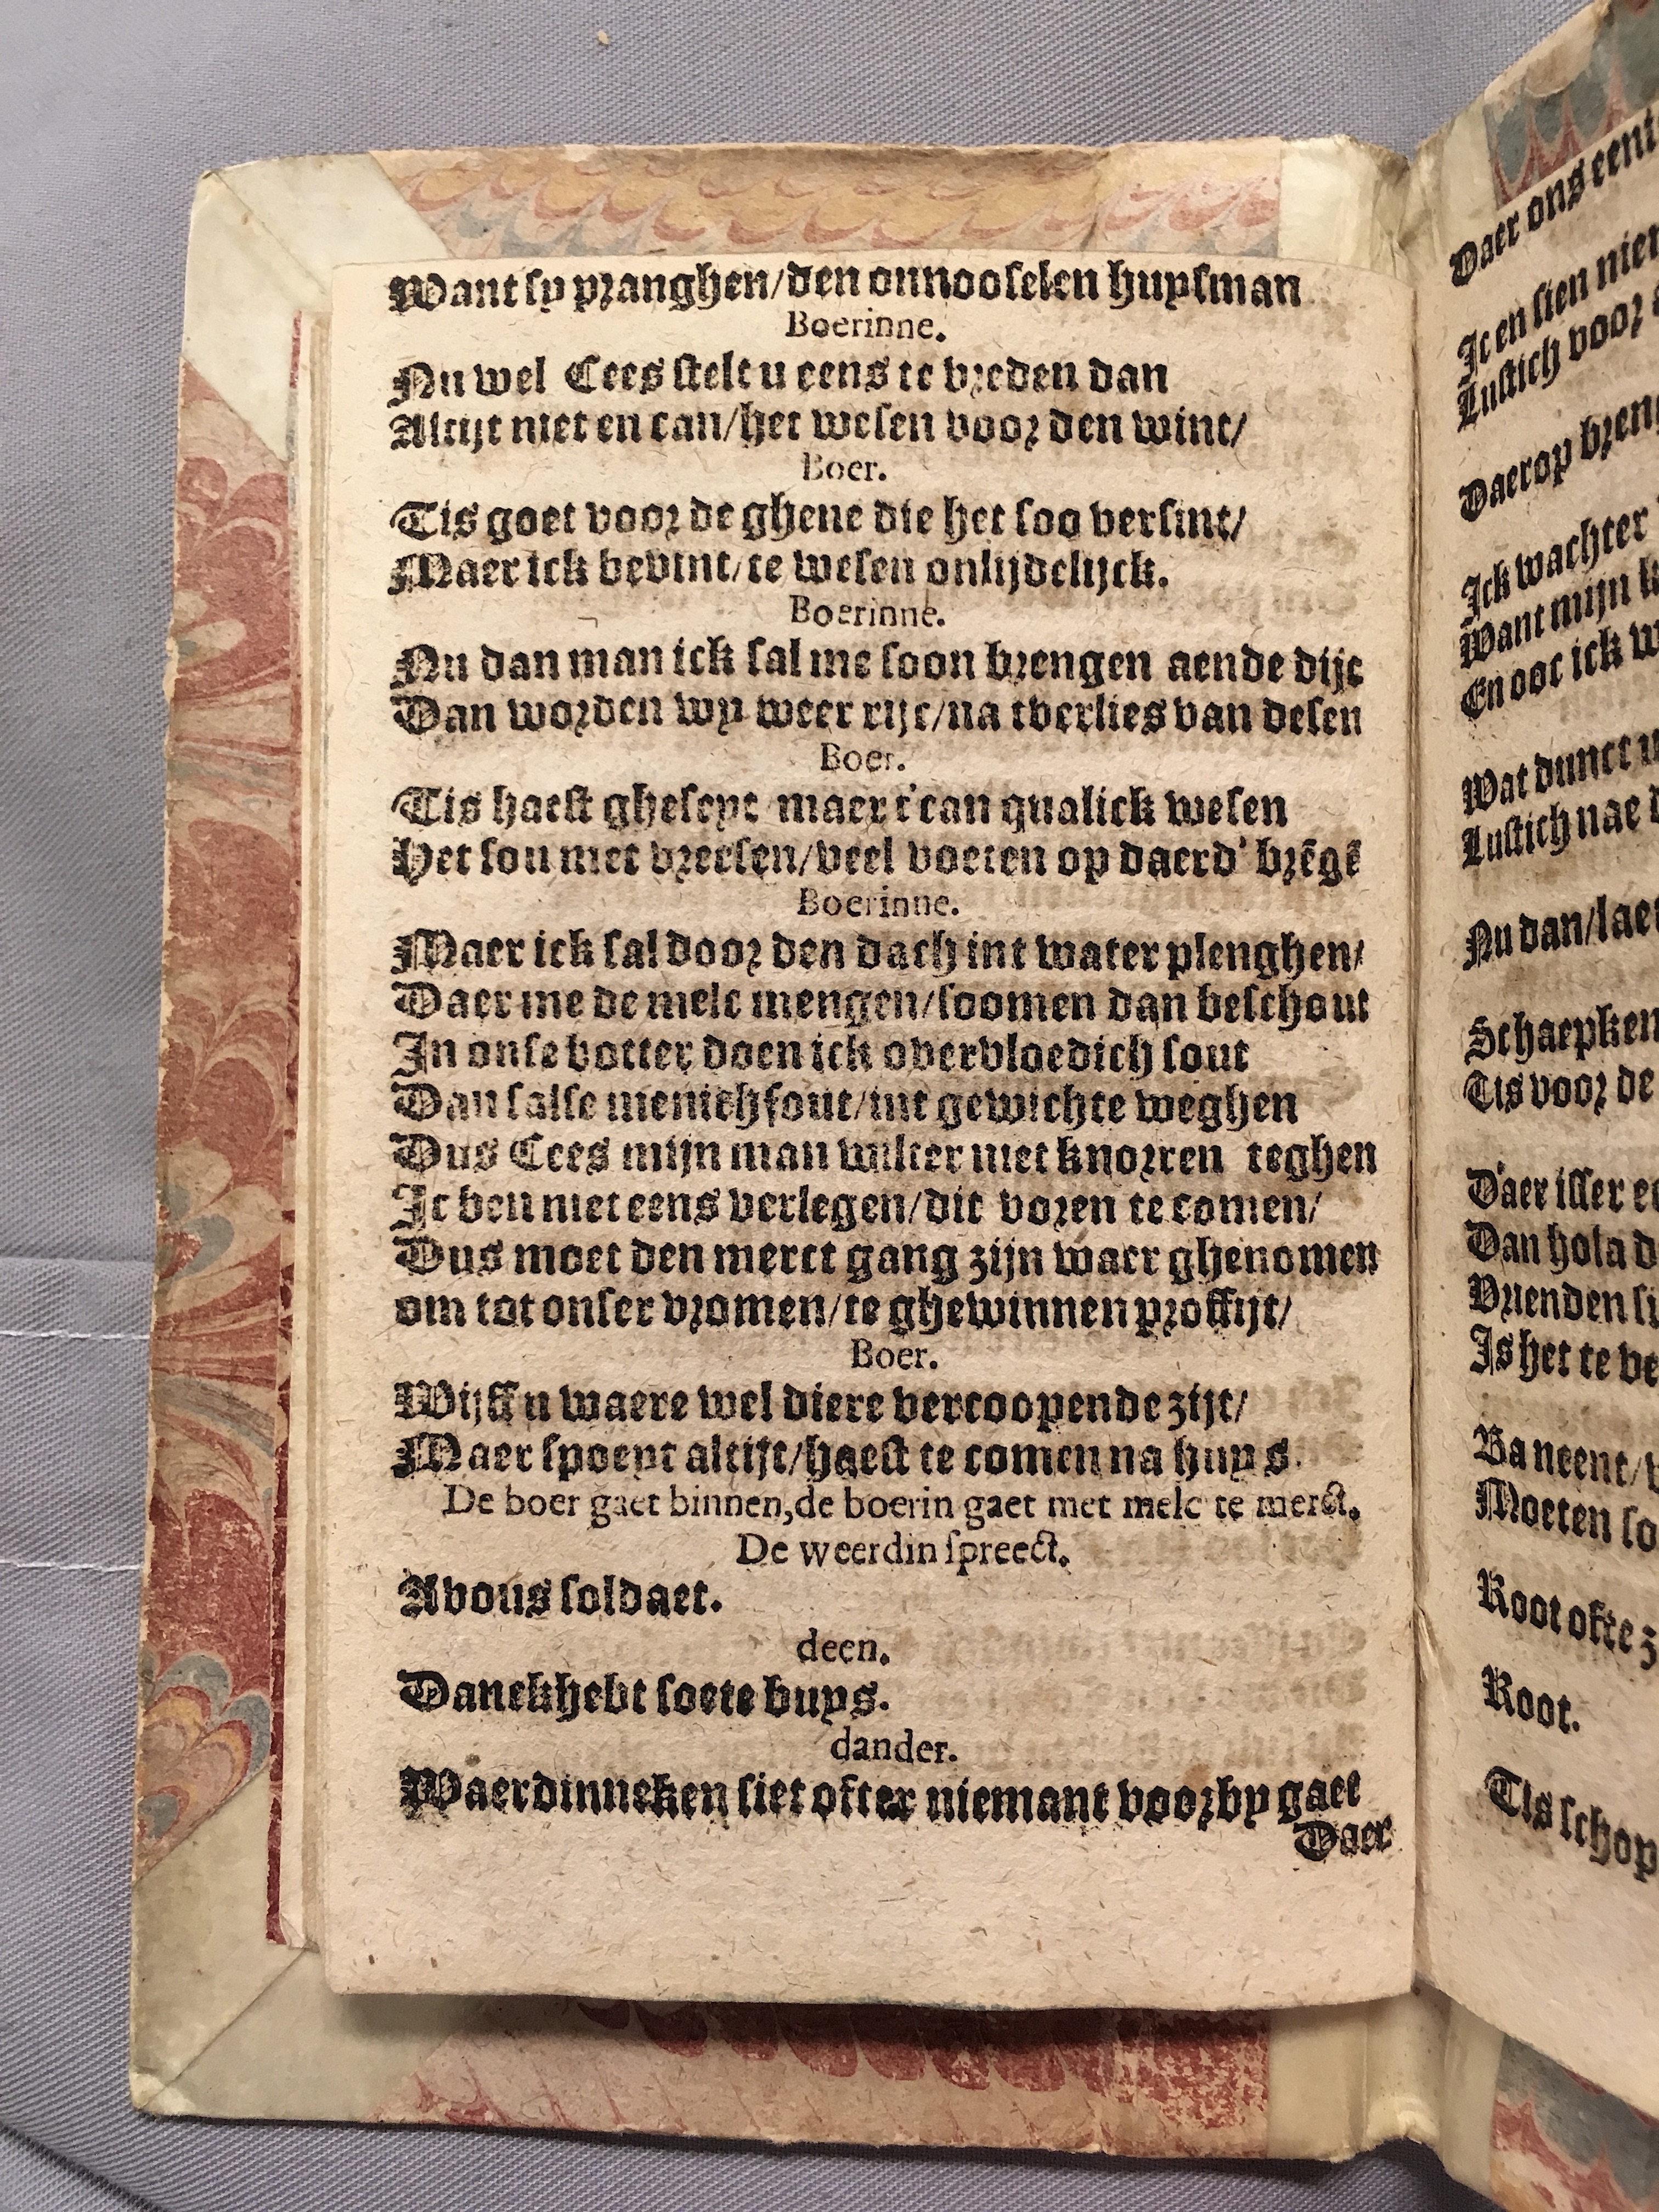 Want sy pranghen/den onnooselen huysman
Boerinne.
Nu wel Cees stelt u eens te vreden dan
Altijt niet en can/het wesen voor den wint/
Boer.
Tis goet voor de ghene die het soo versint/
Maer ick bevint/te wesen onlijdelijck.
Boerinne.
Nu dan man ick sal me soon brengen aende dijc
Dan worden wy weer rijc/na tverlies van desen
Boer.
Tis haest gheseyt maer t'can qualick wesen
Het sou met vreesen/veel voeten op daerd' brēgē
Boerinne.
Maer ick sal door den dach int water plenghen/
Daer me de melc mengen/soomen dan beschout
In onse botter doen ick overvloedich sout
Dan salse menichfout/int gewichte weghen
Dus Cees mijn man wilter niet knorren teghen
Jc ben niet eens verlegen/dit voren te comen/
Dus moet den merct gang zijn waer ghenomen
om tot onser vromen/te ghewinnen proffijt/
Boer.
Wijff u waere wel diere vercoopende zijt/
Maer spoeyt altijt/haest te comen na huys.
De boer gaet binnen,de boerin gaet met melc te merct.
De weerdin spreect.
Avous soldaet.
deen.
Danckhebt soete buys.
dander.
Waerdinneken siet ofter niemant voorby gaet
Daer
Daer ons
Jc en sien
Lustich voor
Daerop
Jck wachter
Want mijn
En ooc ick
Wat dunct
Lustich nae
Nu dan/
Schaepken
Tis voor de
D'aer isser
Dan hola
Vrienden
Is het te
Ba neent/
Moeten
Root ofte
Root.
Tis